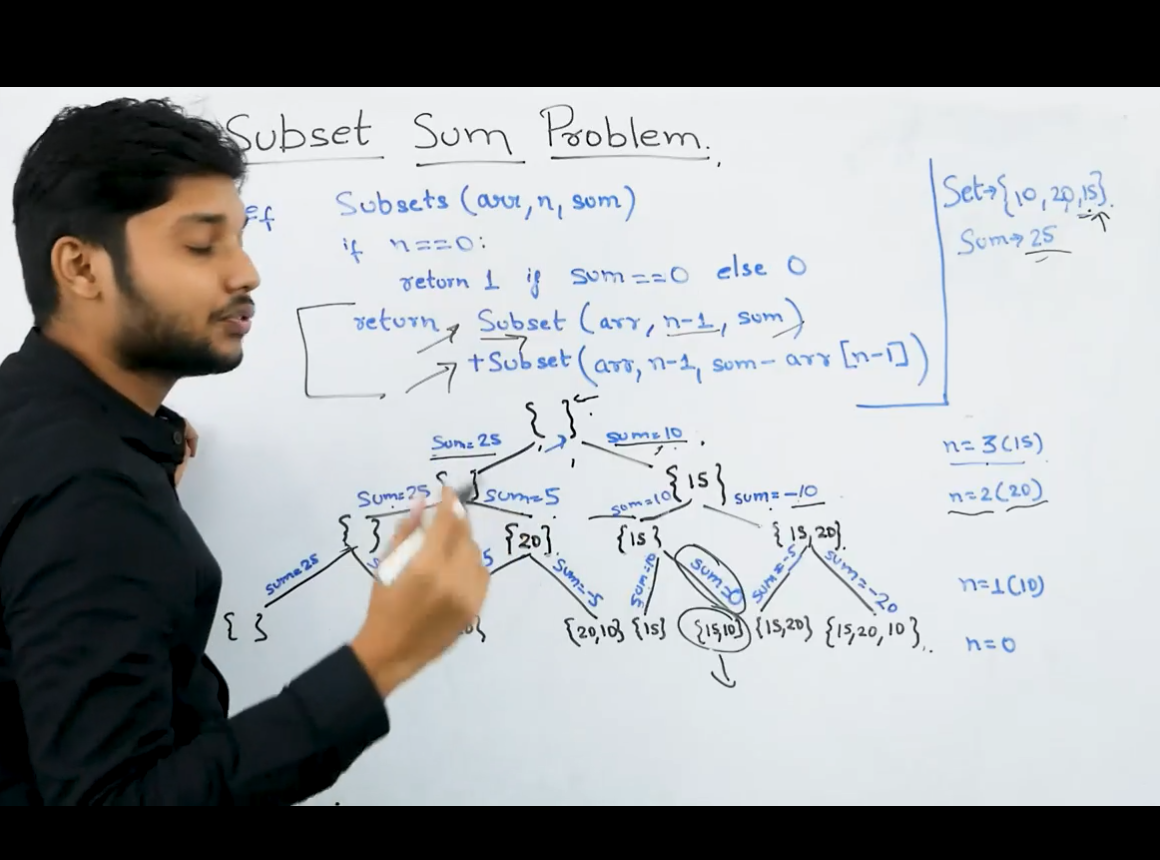 Subset Sum Problem.
ef Subsets (arr, n, sum)
if n==0:
return 1 if sum==0 else 0
return Subset (arr, n-1, sum)
+Subset (arr, n-1, sum- arr [n-1])
Set→{10, 20, 15}.
Sum→25
{ }
Sum=25 sum=10
n=3(15)
{ } {15}
Sum=25 sum=5 sum=10 sum=-10
n=2(20)
{ } {20} {15} {15,20}
sum=25 5 sum=-5 sum=10 sum=0 sum=-5 sum=-20
n=1(10)
{ } {20,10} {15} {15,10} {15,20} {15,20,10}
n=0